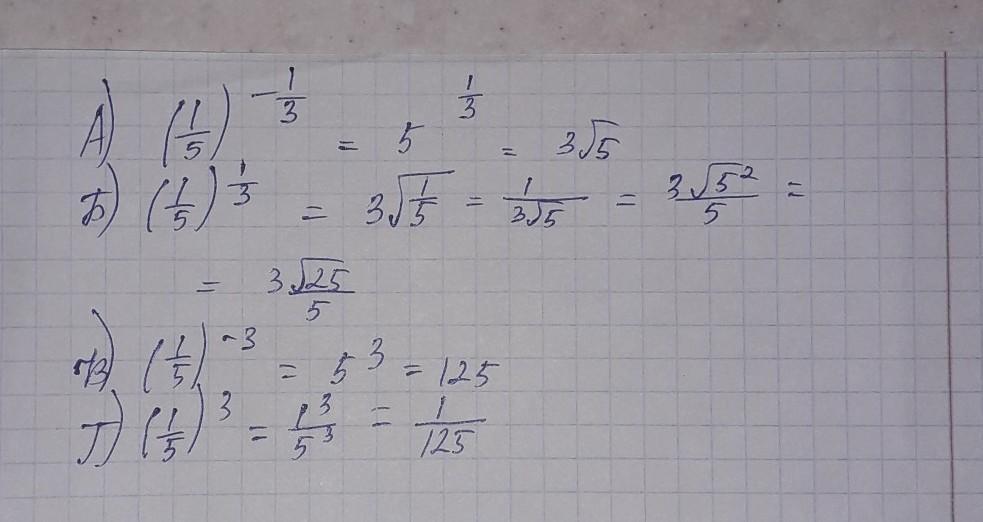 А) (1/5)^(-1/3) = 5^(1/3) = 3√5
Б) (1/5)^(1/3) = 3√(1/5) = 1/(3√5) = 3√5²/5 =
= 3√25/5
В) (1/5)^(-3) = 5³ = 125
Г) (1/5)³ = 1³/5³ = 1/125